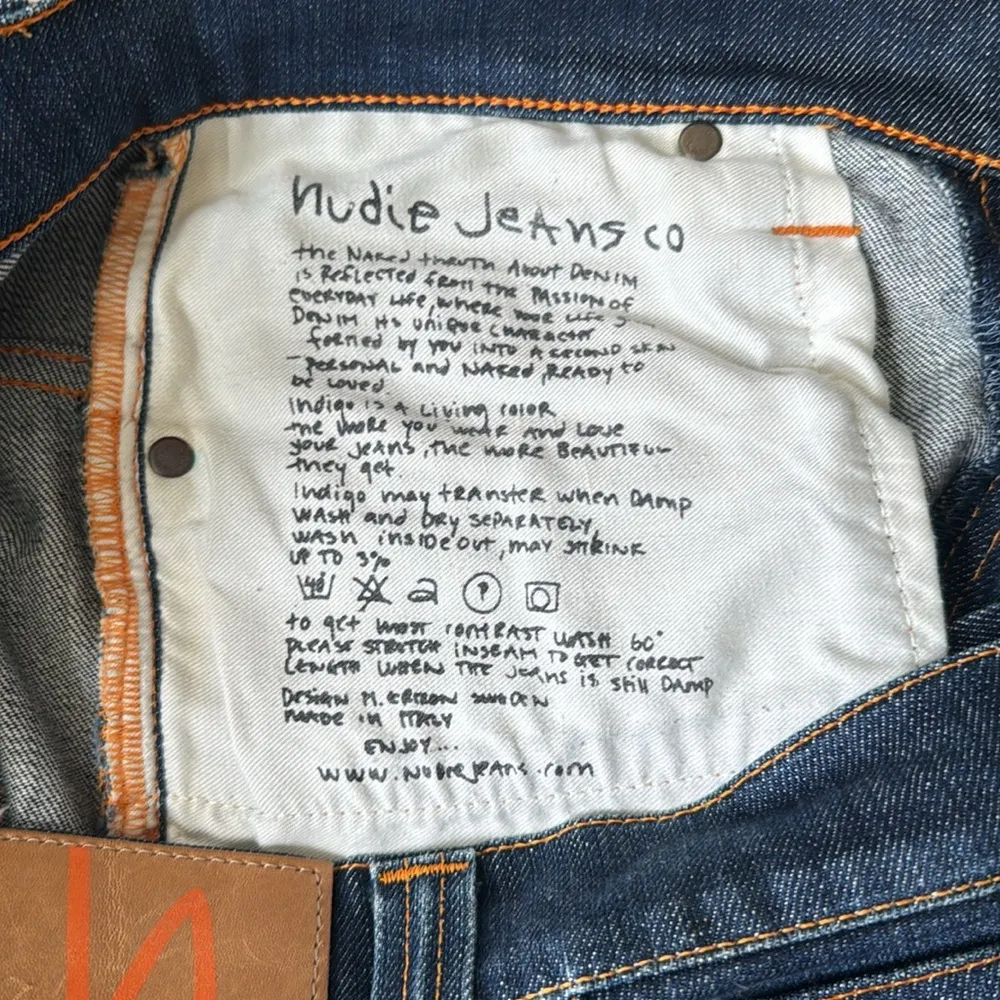 nudie Jeans co
the Naked thruth About Denim
is Reflected from the Passion of
everyday life, where your life
Denim its unique character
formed by you into a second skin
– personal and naked, ready to
be loved
Indigo is a living color
the more you wear and love
your jeans, the more beautiful
they get.
Indigo may transfer when damp
wash and dry separately,
wash inside out, may shrink
up to 3%
40
to get most contrast wash 60°
please stretch inseam to get correct
length when the jeans is still damp
Design M. Erixon Sweden
made in Italy
Enjoy...
www.nudiejeans.com
n